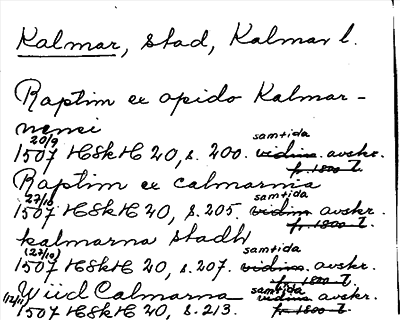 Kalmar, stad, Kalmar l.
Raptim ex opido Kalmar-
nensi
20/9 samtida
1507 HSkH 20, s. 200. vidim. avskr.
fr. 1800-t.
Raptim ex calmarnia
27/10 samtida
1507 HSkH 20, s. 205. vidim. avskr.
fr. 1800-t.
kalmarna stadh
(27/10) samtida
1507 HSkH 20, s. 207. vidim. avskr.
fr. 1800-t.
Wiid Calmarna samtida
1507 HSkH 20, s. 213. vidim. avskr.
fr. 1800-t.